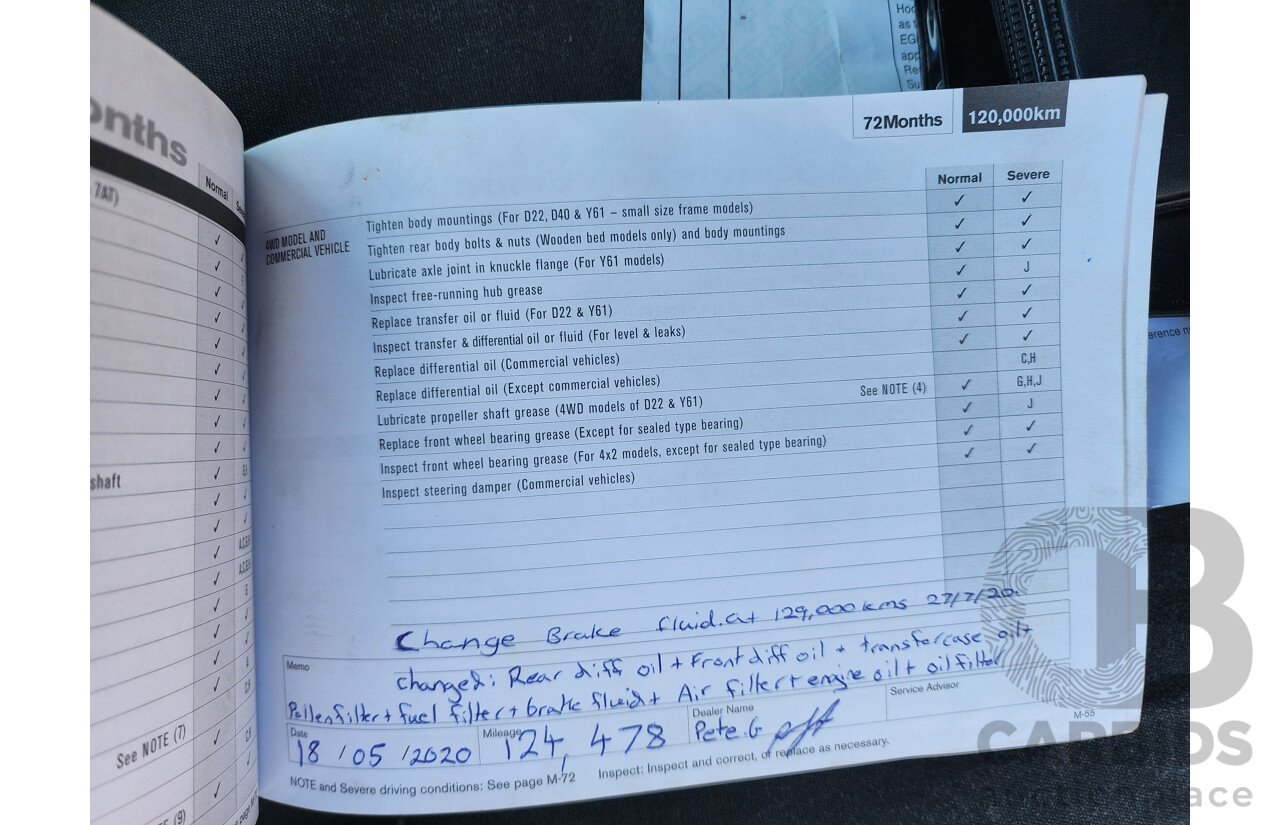 72Months 120,000km
Normal Severe
4WD MODEL AND
COMMERCIAL VEHICLE
Tighten body mountings (For D22, D40 & Y61 – small size frame models) ✓ ✓
Tighten rear body bolts & nuts (Wooden bed models only) and body mountings ✓ ✓
Lubricate axle joint in knuckle flange (For Y61 models) ✓ ✓
Inspect free-running hub grease ✓ J
Replace transfer oil or fluid (For D22 & Y61) ✓ ✓
Inspect transfer & differential oil or fluid (For level & leaks) ✓ ✓
Replace differential oil (Commercial vehicles) ✓ ✓
Replace differential oil (Except commercial vehicles) C,H
Lubricate propeller shaft grease (4WD models of D22 & Y61) See NOTE (4) ✓ G,H,J
Replace front wheel bearing grease (Except for sealed type bearing) ✓ J
Inspect front wheel bearing grease (For 4x2 models, except for sealed type bearing) ✓ ✓
Inspect steering damper (Commercial vehicles) ✓ ✓
Change Brake fluid. at 129,000 kms 27/7/20.
Memo
changed: Rear diff oil + Front diff oil + transfercase oil +
Pollen filter + fuel filter + brake fluid + Air filter + engine oil + oil filter
Date 18/05/2020
Mileage 124,478
Dealer Name Pete.G
Service Advisor
M-55
NOTE and Severe driving conditions: See page M-72 Inspect: Inspect and correct, or replace as necessary.
onths
7AT)
Normal
shaft
See NOTE (7)
(9)
Hoo
as
EG
app
Re
Su
erence n
CB